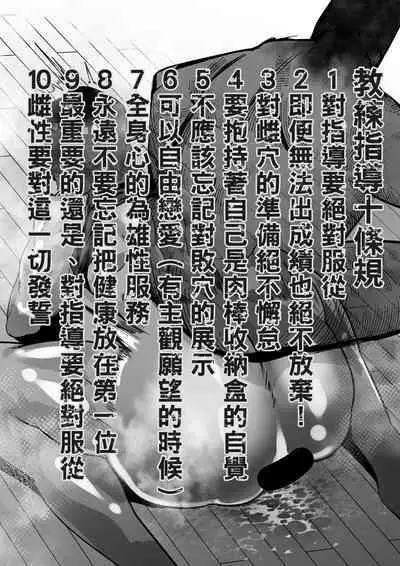 教練指導十條規
1對指導要絕對服從
2即便無法出成績也絕不放棄！
3對雌穴的準備絕不懈怠
4要抱持著自己是肉棒收納盒的自覺
5不應該忘記對敗穴的展示
6可以自由戀愛（有主觀願望的時候）
7全身心的為雄性服務
8永遠不要忘記把健康放在第一位
9最重要的還是、對指導要絕對服從
10雌性要對這一切發誓